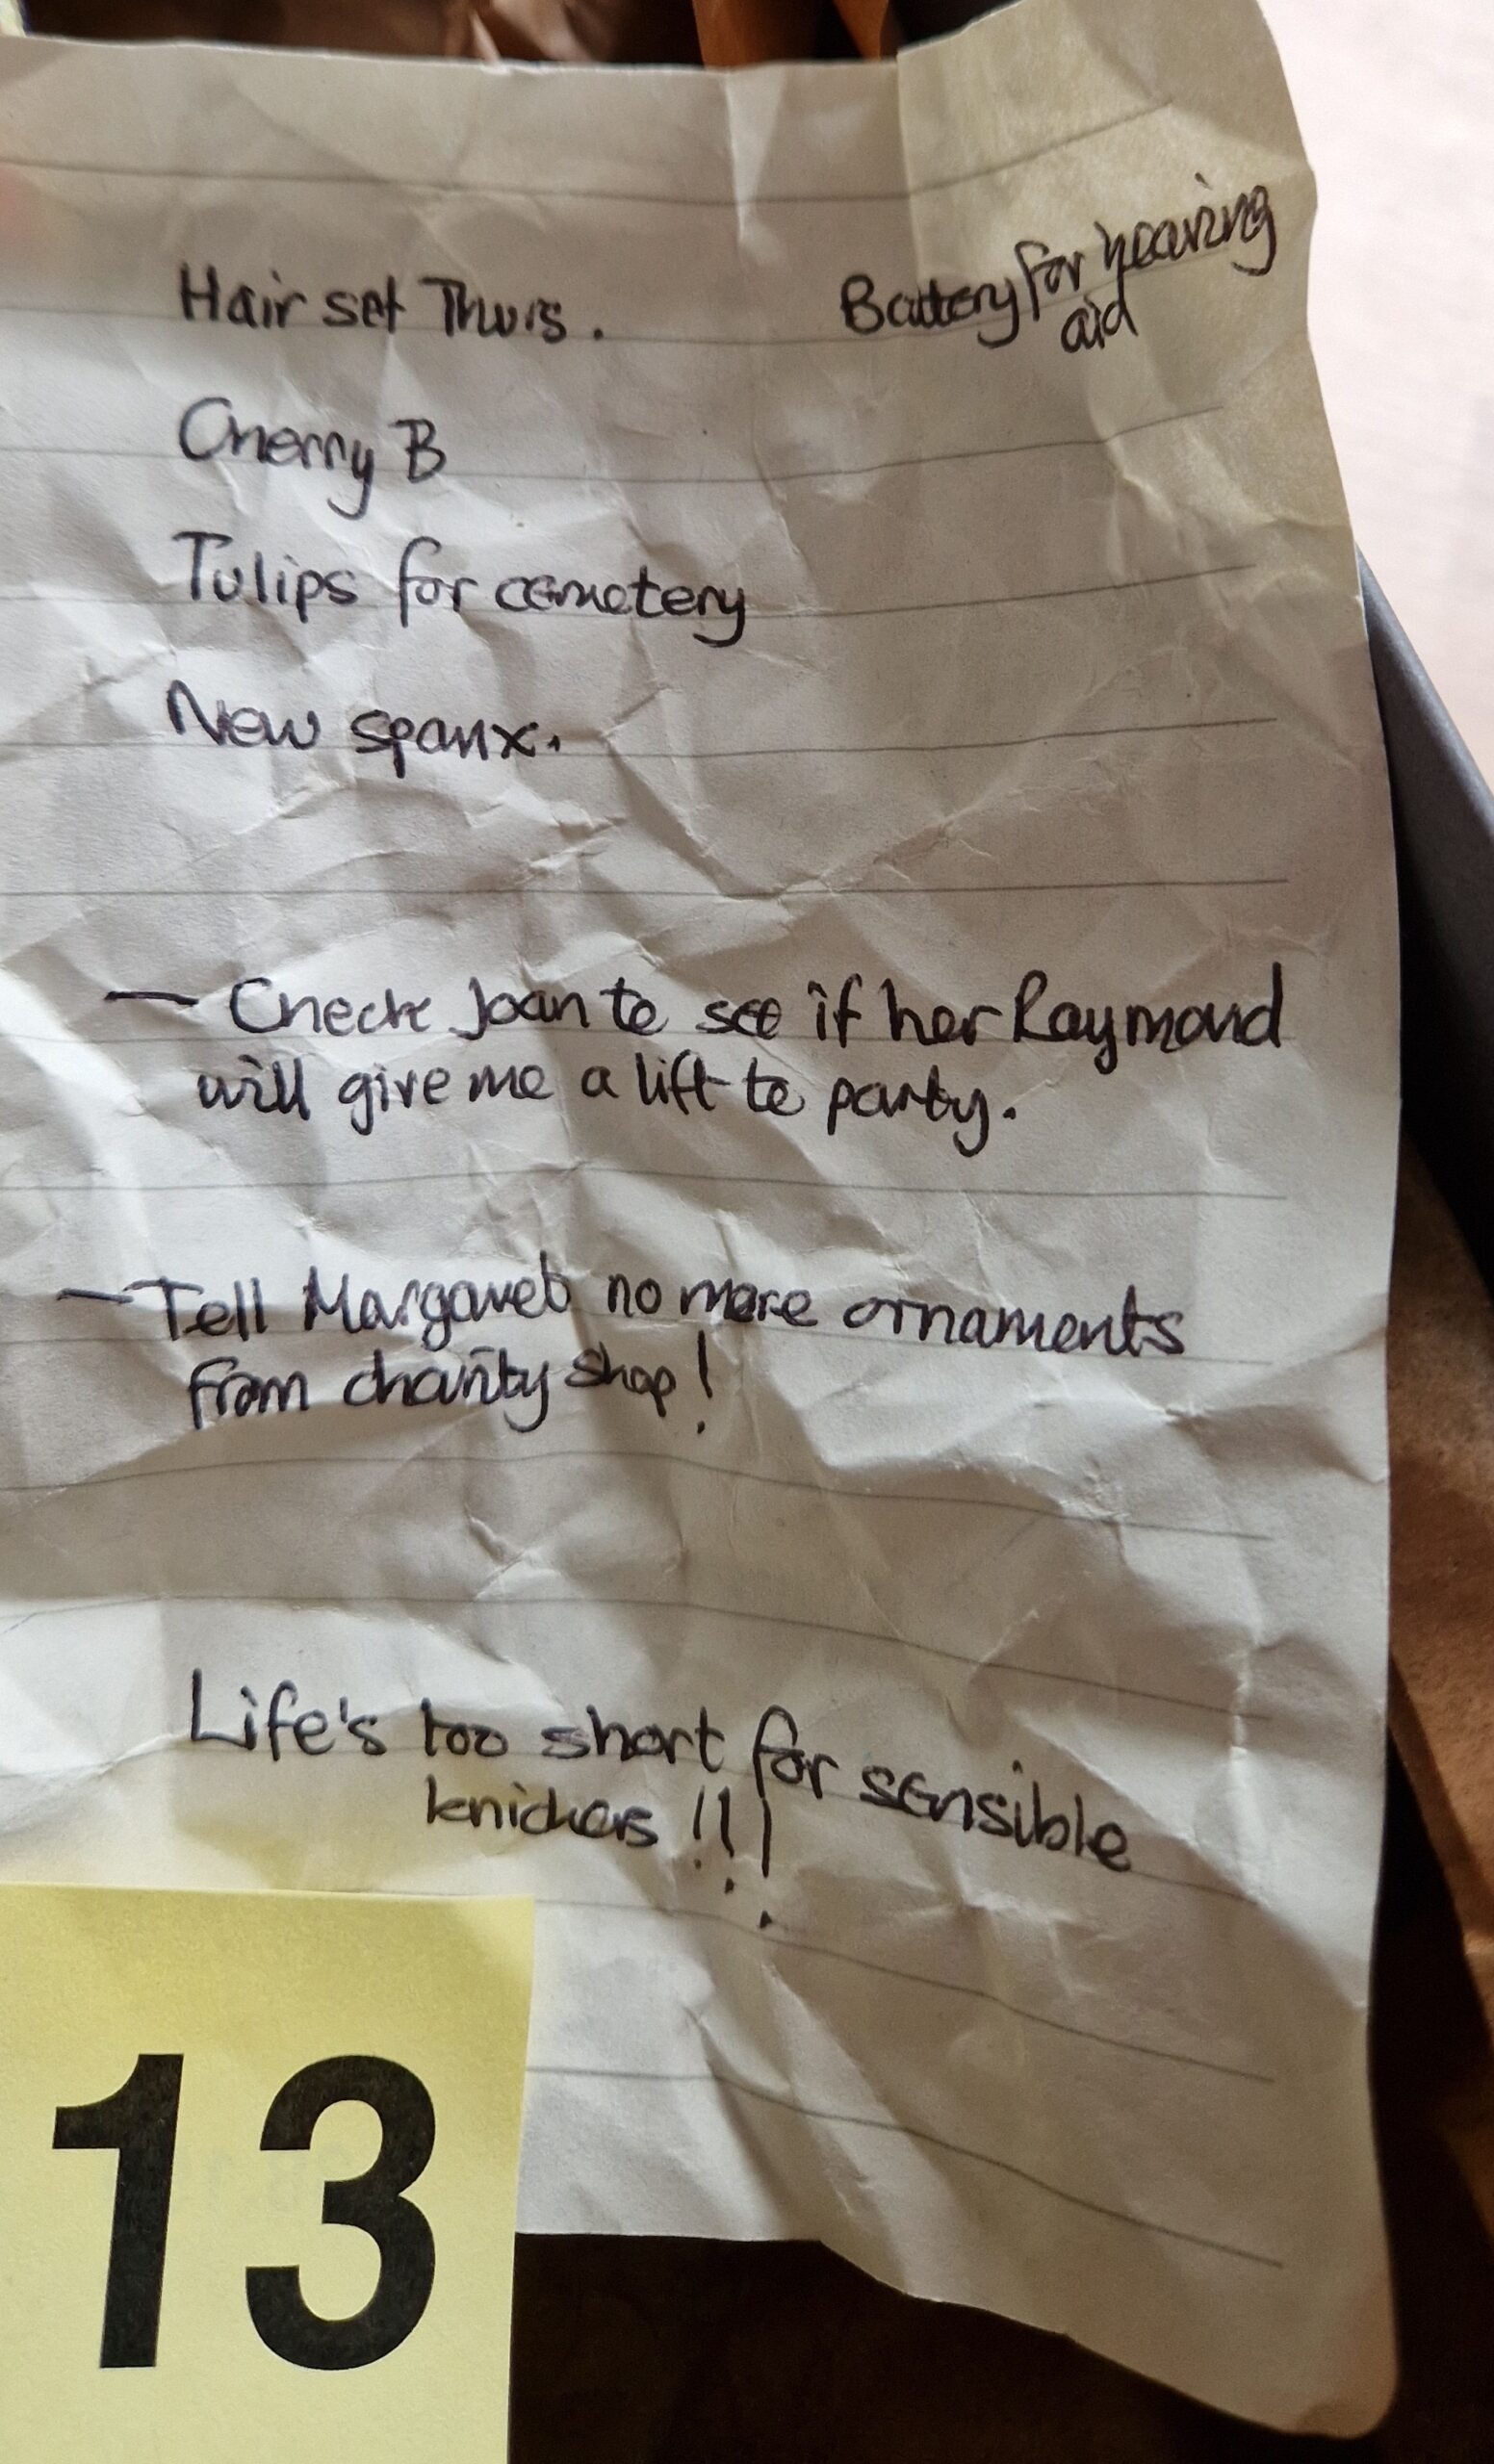 Hair set Thurs.
Battery for hearing
aid
Cherry B
Tulips for cemetery
New spanx.
— Check Joan to see if her Raymond
will give me a lift to party.
— Tell Margaret no more ornaments
from charity shop!
Life's too short for sensible
knickers !!!
13